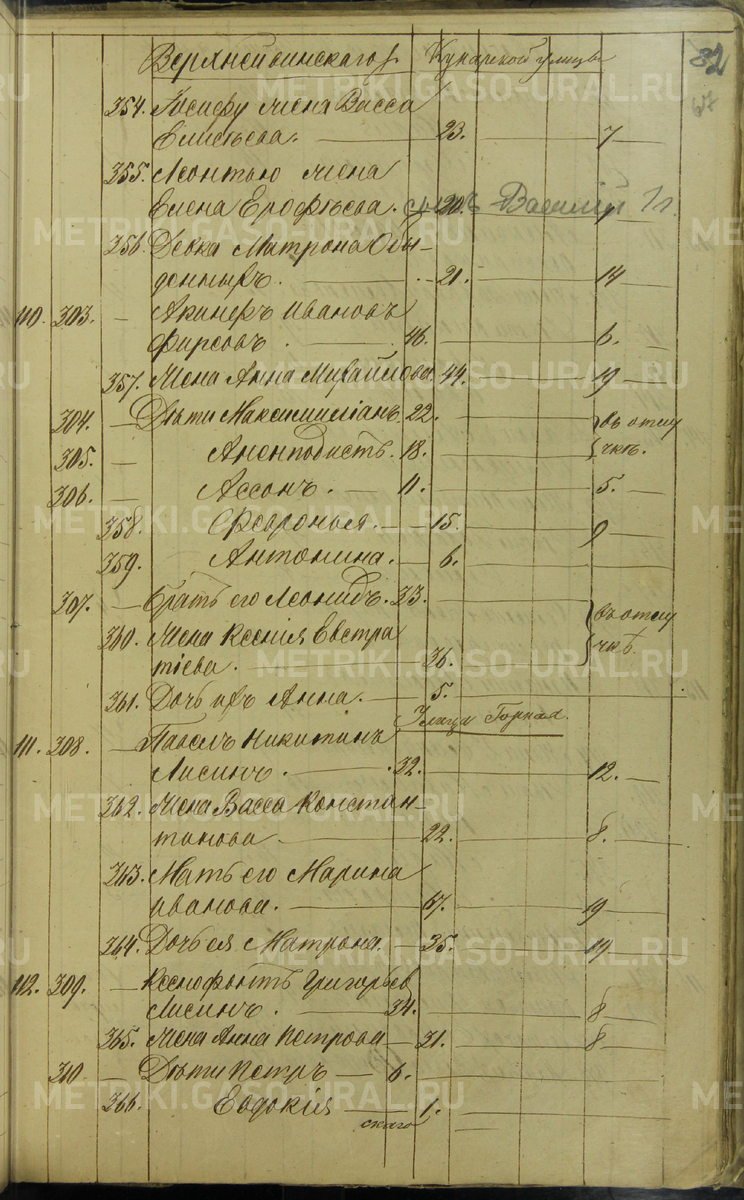 Верхнейвинскаго Кунарской улицы 82
354. Іосифу жена Васса
Елисѣева. 23. 7
355. Леонтью жена
Елена Ерофѣева. 20. сынъ Василій 1 л.
356. Девка Матрона Обы-
денныхъ. 21. 14
110. 303. Акинфъ Ивановъ
Фирсовъ. 46. 6.
357. Жена Анна Михайлова 44. 19
304. Дѣти Максимиліанъ. 22. въ отлу
305. Аненподистъ. 18. чкѣ.
306. Ассонъ. 11. 5.
358. Февронья. 15. 9
359. Антонина. 6.
307. Братъ его Леонидъ. 33. въ отлу
360. Жена Ксенія Евстра чкѣ.
тіева. 36.
361. Дочь ихъ Анна. 5.
Улица Горная.
111. 308. Павелъ Никитинъ
Лисинъ. 32. 12.
362. Жена Васса Констан-
тинова 22. 8.
363. Мать его Марина
Иванова. 67. 19
364. Дочь ея Матрона. 35. 19
112. 309. Ксенофонтъ Григорьев
Лисинъ. 34. 8
365. Жена Анна Петрова 31. 8
310 Дѣти Петръ 6.
366. Евдокія 1.
скаго
METRIKI.GASO-URAL.RU